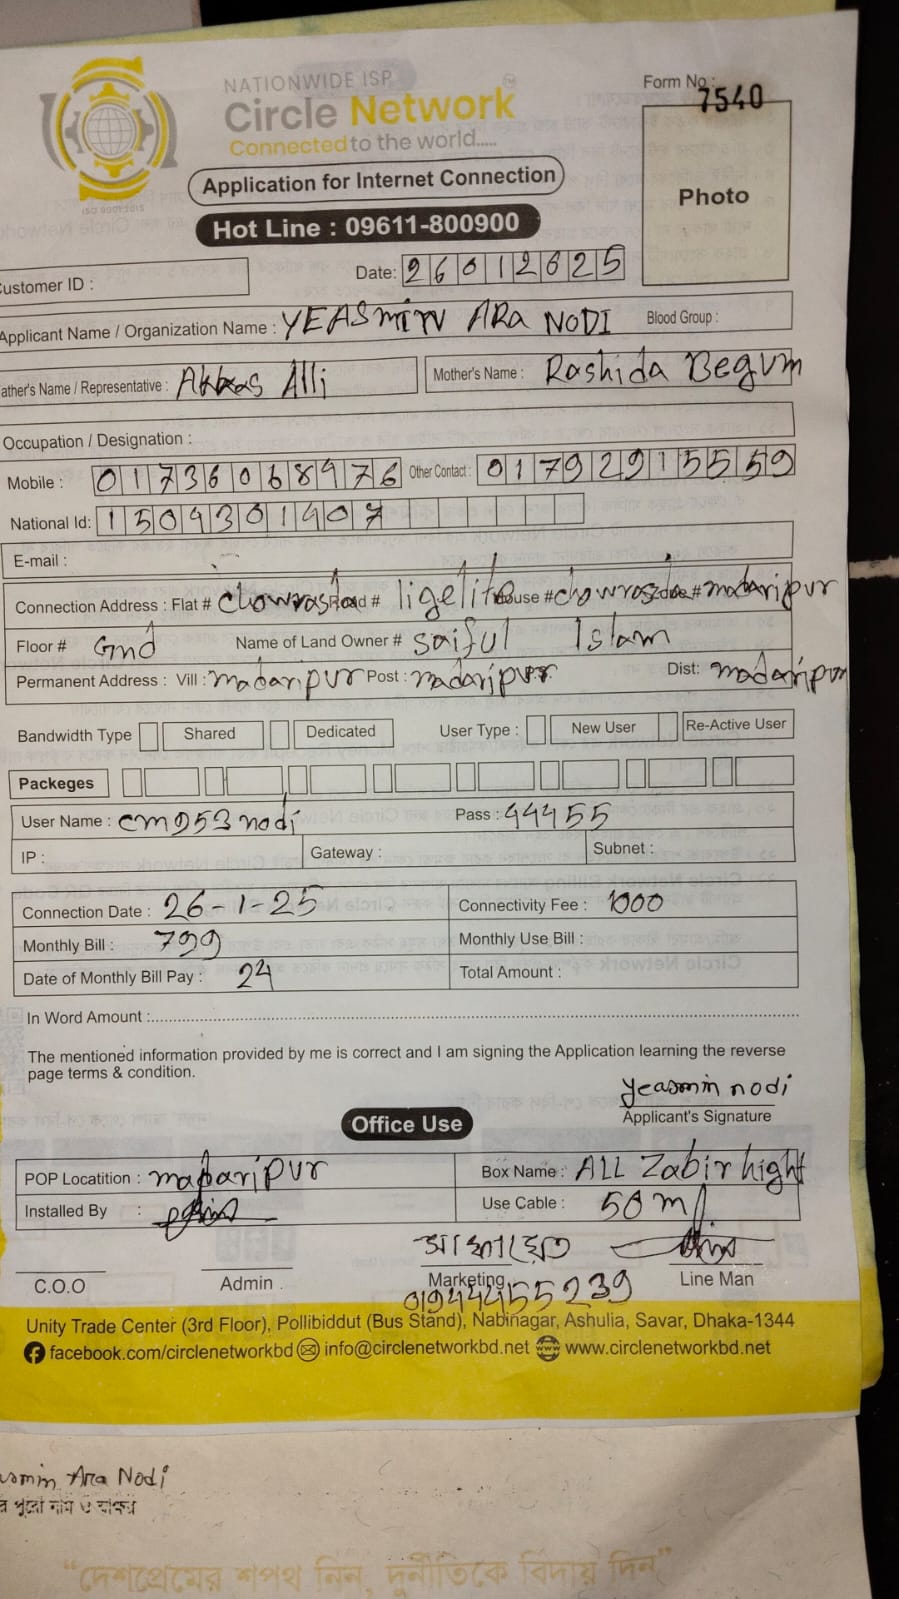 NATIONWIDE ISP
Circle Network
Connected to the world.....
ISO 9001:2015
Form No.: 7540
Application for Internet Connection
Photo
Hot Line : 09611-800900
Customer ID :
Date: 26012025
Applicant Name / Organization Name : YEASMIN ARA NODI Blood Group :
Father's Name / Representative : Akkas Alli Mother's Name : Rashida Begum
Occupation / Designation :
Mobile : 01736068976 Other Contact : 01792915559
National Id: 1504301407
E-mail :
Connection Address : Flat # chowrasta Road # ligelite House # chowrasta # madaripur
Floor # Gnd Name of Land Owner # saiful Islam
Permanent Address : Vill : madaripur Post : madaripur Dist: madaripur
Bandwidth Type Shared Dedicated User Type : New User Re-Active User
Packeges
User Name : cm953nodi Pass : 44455
IP : Gateway : Subnet :
Connection Date : 26-1-25 Connectivity Fee : 1000
Monthly Bill : 799 Monthly Use Bill :
Date of Monthly Bill Pay : 24 Total Amount :
In Word Amount :
The mentioned information provided by me is correct and I am signing the Application learning the reverse
page terms & condition.
yeasmin nodi
Applicant's Signature
Office Use
POP Locatition : madaripur Box Name : ALL Zabir hight
Installed By : Use Cable : 50 m
C.O.O Admin Marketing Line Man
01944455239
Unity Trade Center (3rd Floor), Pollibiddut (Bus Stand), Nabinagar, Ashulia, Savar, Dhaka-1344
facebook.com/circlenetworkbd info@circlenetworkbd.net www.circlenetworkbd.net
Ara Nodi
পুরো নাম ও স্বাক্ষর
“দেশপ্রেমের শপথ নিন, দুর্নীতিকে বিদায় দিন”